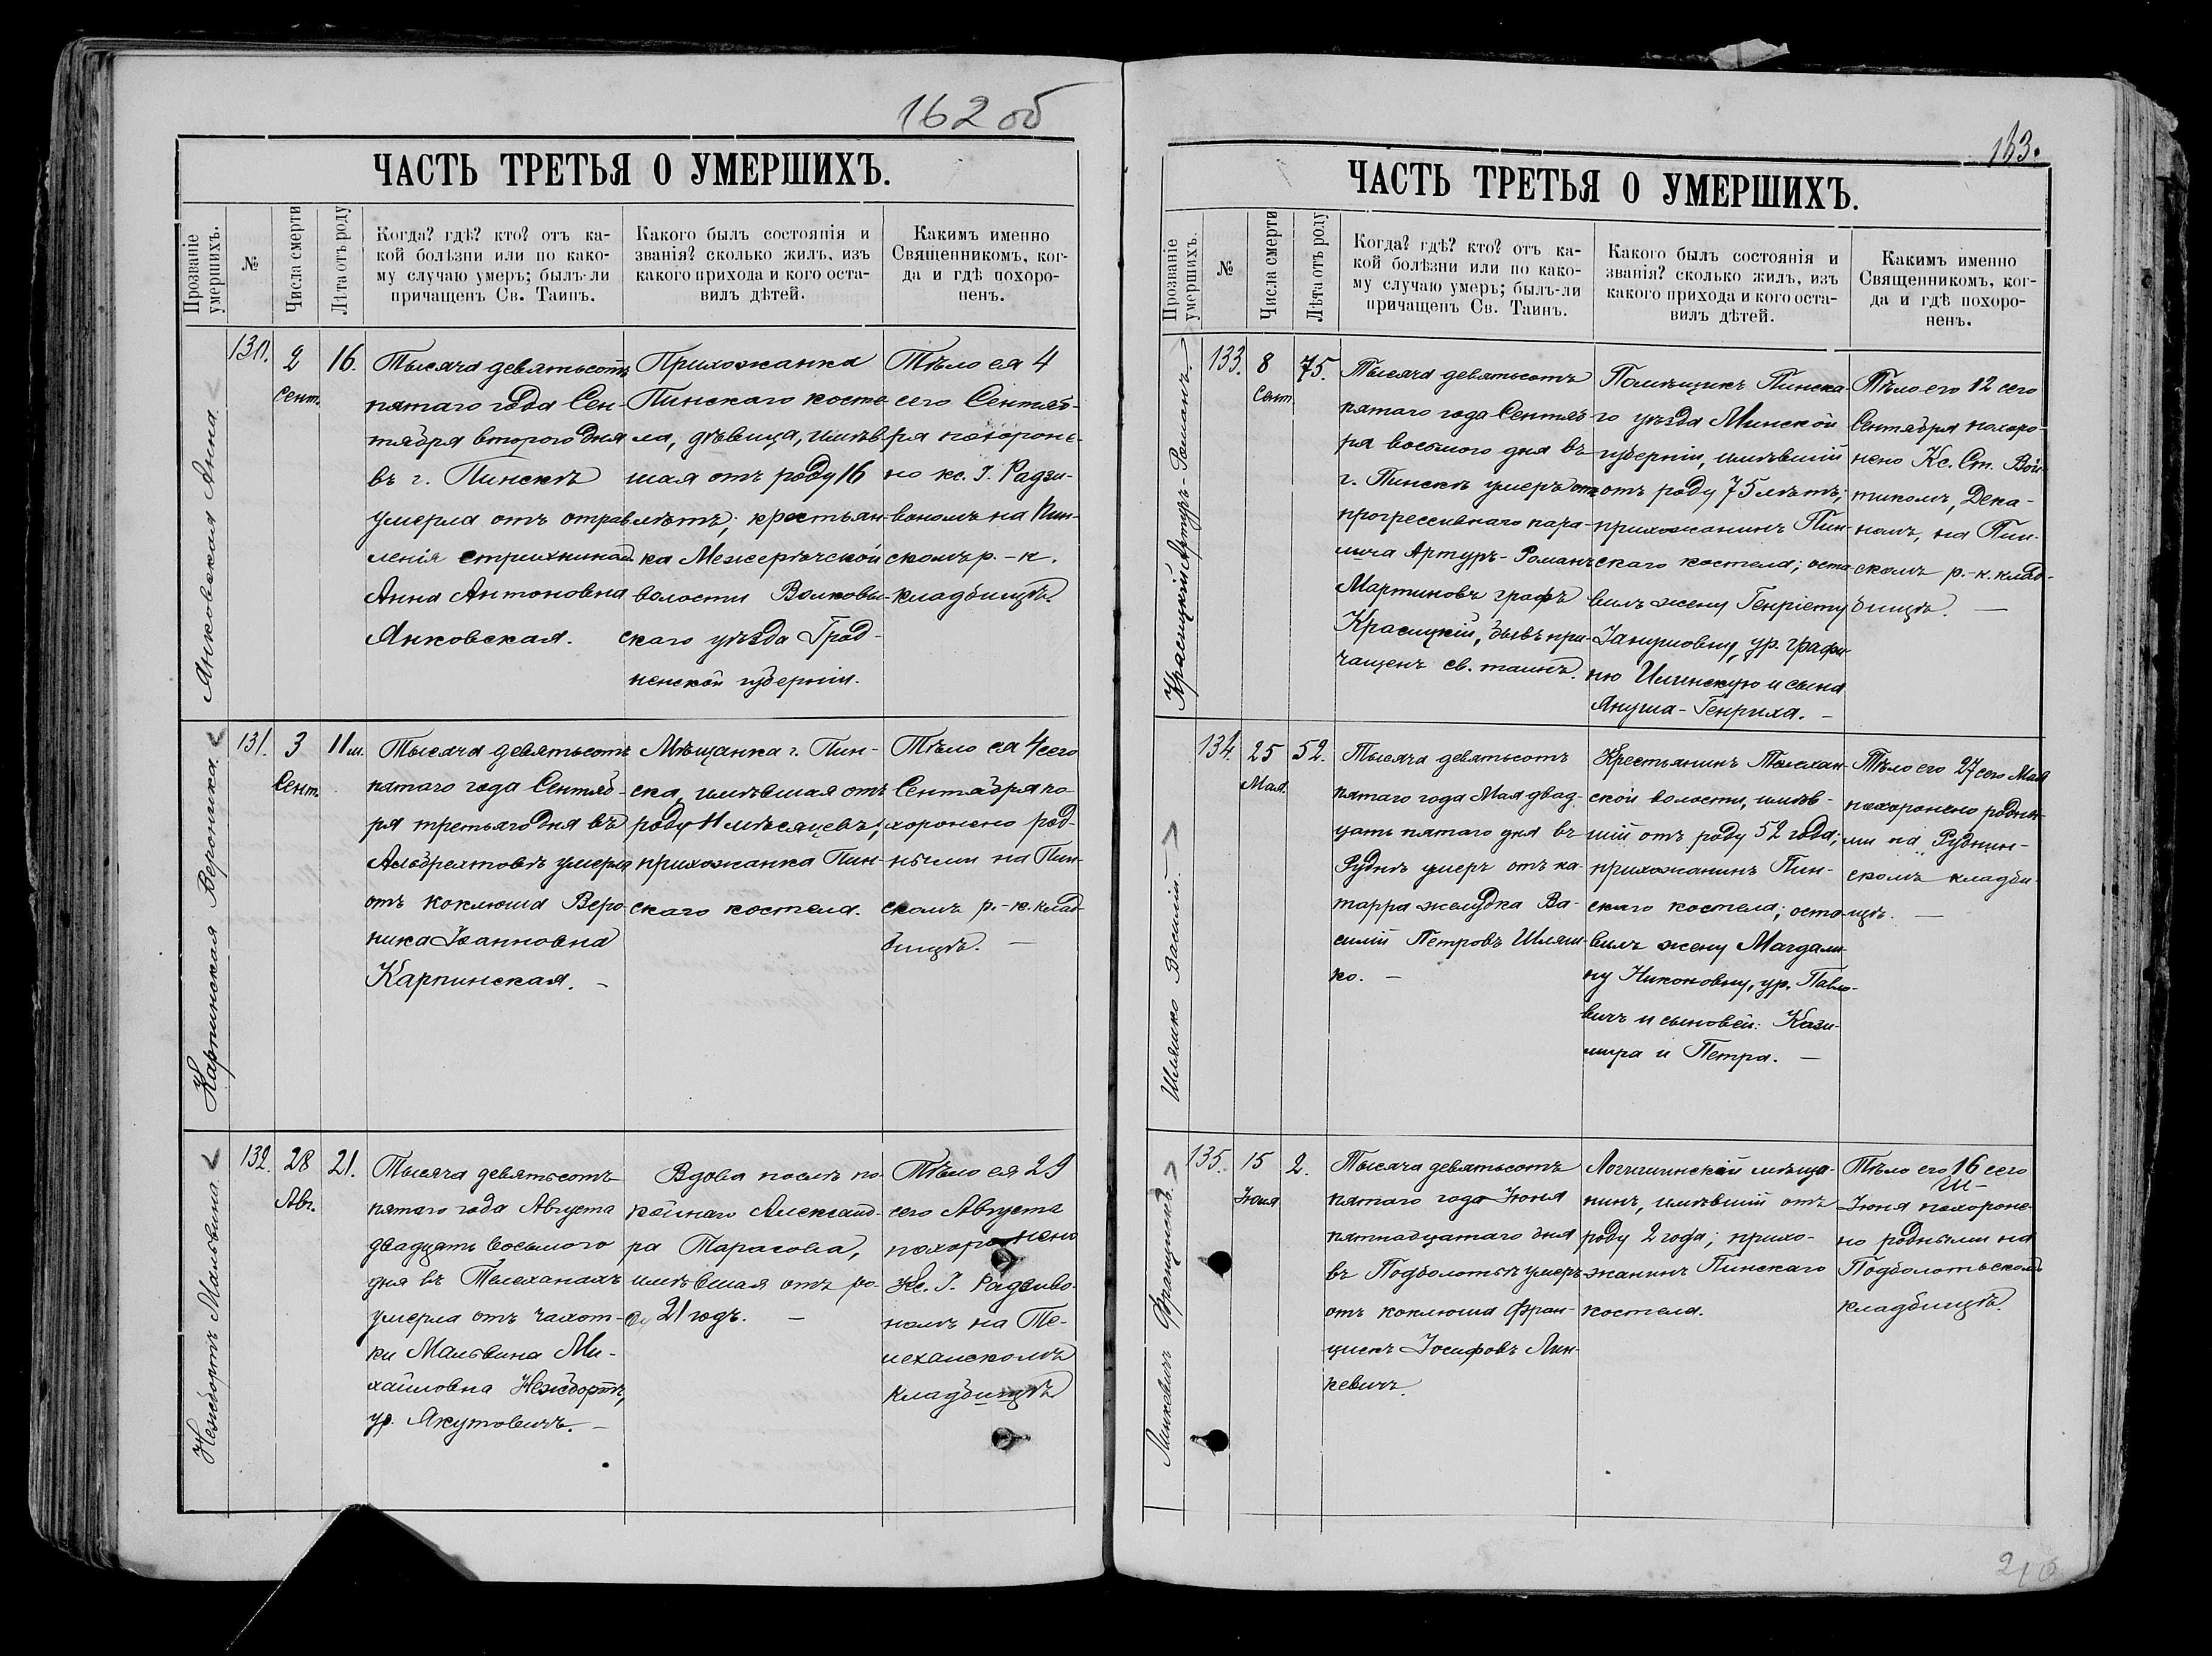 162 об
ЧАСТЬ ТРЕТЬЯ О УМЕРШИХЪ.
Прозваніе умершихъ.
№
Числа смерти
Лѣта отъ роду
Когда? гдѣ? кто? отъ ка-
кой болѣзни или по како-
му случаю умеръ; былъ-ли
причащенъ Св. Таинъ.
Какого былъ состоянія и
званія? сколько жилъ, изъ
какого прихода и кого оста-
вилъ дѣтей.
Какимъ именно
Священникомъ, ког-
да и гдѣ похоро-
ненъ.
Янковская Анна
130.
2
Сент.
16.
Тысяча девятьсотъ
пятаго года Сен-
тября второго дня
въ г. Пинскѣ
умерла отъ отрав
ленія стрихниномъ
Анна Антоновна
Янковская.
Прихожанка
Пинскаго косте
ла, дѣвица, имѣв
шая отъ роду 16
лѣтъ; крестьян-
ка Межеречской
волости Волковы-
скаго уѣзда Грод-
ненской губерніи.
Тѣло ея 4
сего Сентяб-
ря похороне-
но кс. І. Радзи-
вономъ на Пин-
скомъ р.-к.
кладбищѣ.
Карпинская Вероника
131.
3
Сент.
11 м.
Тысяча девятьсотъ
пятаго года Сентяб-
ря третьяго дня въ
Альбрехтовѣ умерла
отъ коклюша Веро-
ника Іоанновна
Карпинская. -
Мѣщанка г. Пин-
ска, имѣвшая отъ
роду 11 мѣсяцевъ;
прихожанка Пин-
скаго костела.
Тѣло ея 4 сего
Сентября по-
хоронено род-
ными на Пин-
скомъ р.-к. клад-
бищѣ. -
Нежбортъ Мальвина
132.
28
Авг.
21.
Тысяча девятьсотъ
пятаго года Августа
двадцать восьмого
дня въ Телеханахъ
умерла отъ чахот-
ки Мальвина Ми-
хайловна Нежбортъ,
ур. Якутовичъ. -
Вдова послѣ по-
койнаго Александ-
ра Тарасова,
имѣвшая отъ ро-
ду 21 годъ. -
Тѣло ея 29
сего Августа
похоронено
Кс. І. Радзиво-
номъ на Те-
леханскомъ
кладбищѣ
163.
ЧАСТЬ ТРЕТЬЯ О УМЕРШИХЪ.
Прозваніе умершихъ.
№
Числа смерти
Лѣта отъ роду
Когда? гдѣ? кто? отъ ка-
кой болѣзни или по како-
му случаю умеръ; былъ-ли
причащенъ Св. Таинъ.
Какого былъ состоянія и
званія? сколько жилъ, изъ
какого прихода и кого оста-
вилъ дѣтей.
Какимъ именно
Священникомъ, ког-
да и гдѣ похоро-
ненъ.
Красицкій Артуръ-Романъ.
133.
8
Сент.
75.
Тысяча девятьсотъ
пятаго года Сентяб-
ря восьмого дня въ
г. Пинскѣ умеръ отъ
прогрессивнаго пара-
лича Артуръ-Романъ
Мартиновъ графъ
Красицкій, бывъ при-
чащенъ св. таинъ.
Помѣщикъ Пинска-
го уѣзда Минской
губерніи, имѣвшій
отъ роду 75 лѣтъ;
прихожанинъ Пин-
скаго костела; оста-
вилъ жену Генріету
Янушовну, ур. графи-
ню Илинскую и сына
Януша-Генриха. -
Тѣло его 12 сего
Сентября похоро-
нено Кс. Ст. Вой-
тикомъ, Дека-
номъ, на Пин-
скомъ р.-к. клад-
бищѣ. -
Шляшко Василій.
134.
25
Мая.
52.
Тысяча девятьсотъ
пятаго года Мая двад-
цать пятаго дня въ
Руднѣ умеръ отъ ка-
тарра желудка Ва-
силій Петровъ Шляш-
ко. -
Крестьянинъ Телехан-
ской волости, имѣв-
шій отъ роду 52 года;
прихожанинъ Пин-
скаго костела; оста-
вилъ жену Магдали-
ну Никоновну, ур. Павло-
вичъ и сыновей: Кази-
мира и Петра. -
Тѣло его 27 сего Мая
похоронено родны-
ми на Руднин-
скомъ кладби-
щѣ. -
Линкевичъ Францискъ.
135.
15
Іюня
2.
Тысяча девятьсотъ
пятаго года Іюня
пятнадцатаго дня
въ Подболотьѣ умеръ
отъ коклюша Фран-
цискъ Іосифовъ Лин-
кевичъ.
Логишинскій мѣща-
нинъ, имѣвшій отъ
роду 2 года; прихо-
жанинъ Пинскаго
костела.
Тѣло его 16 сего
Іюня похороне-
но родными на
Подболотьскомъ
кладбищѣ.